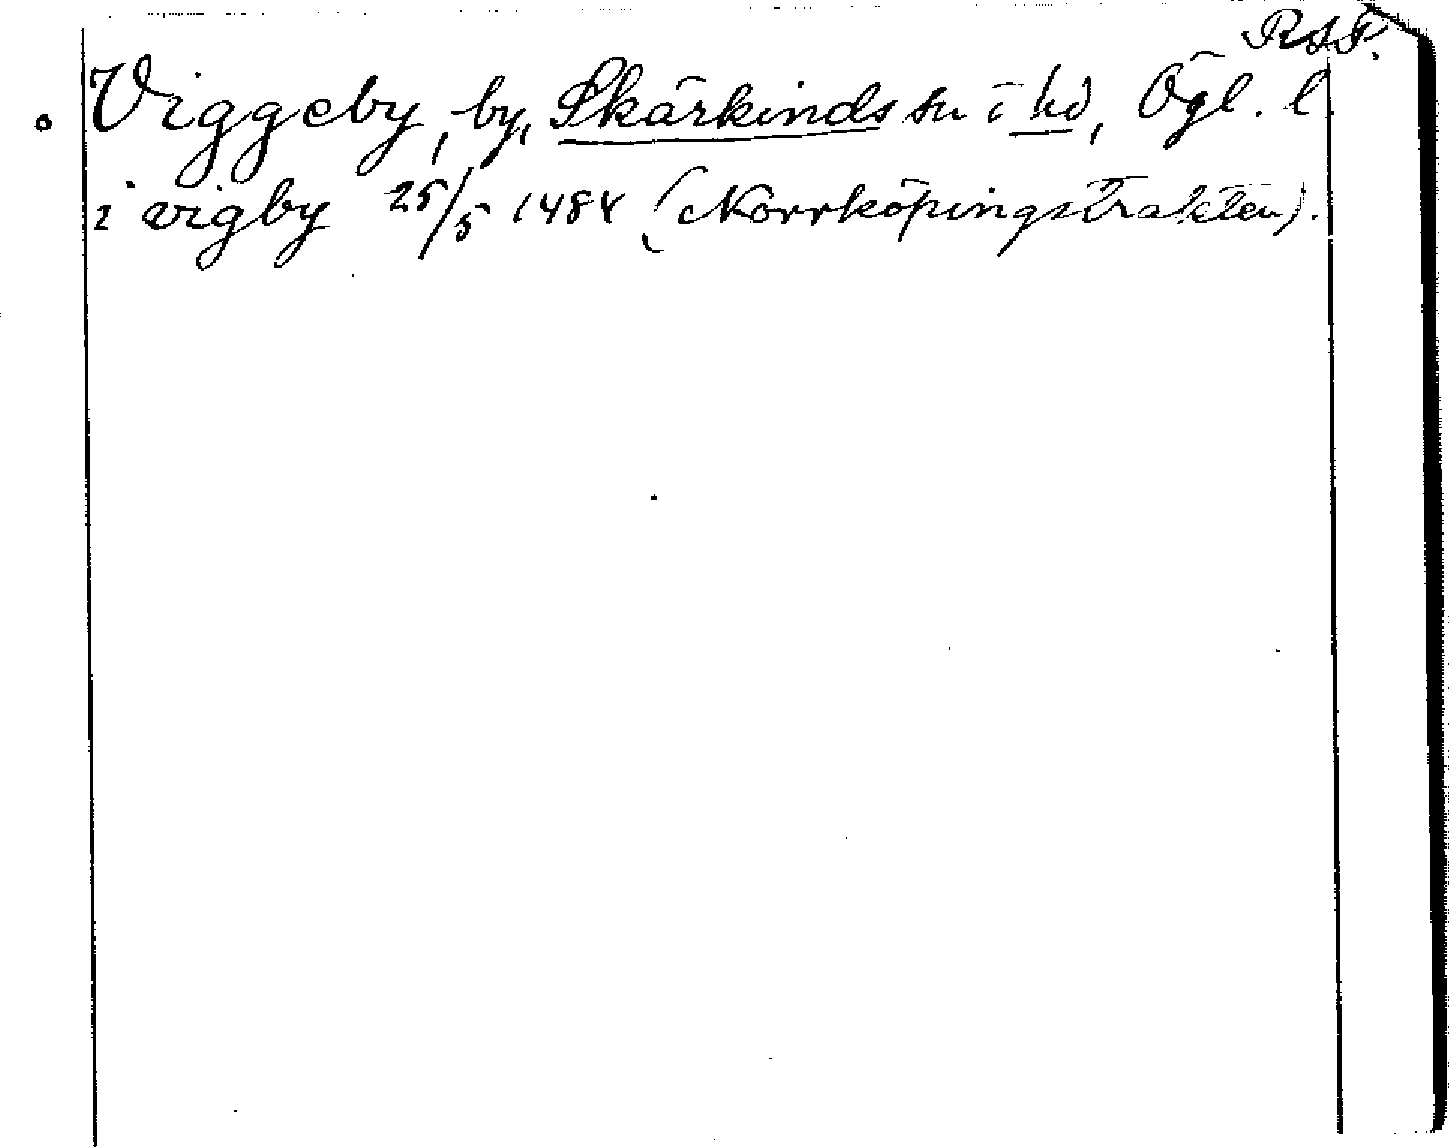 RSF.
Viggeby, by, Skärkinds sn i hd, Ögl. l
i vigby 25/5 1484 (Norrköpingstrakten).